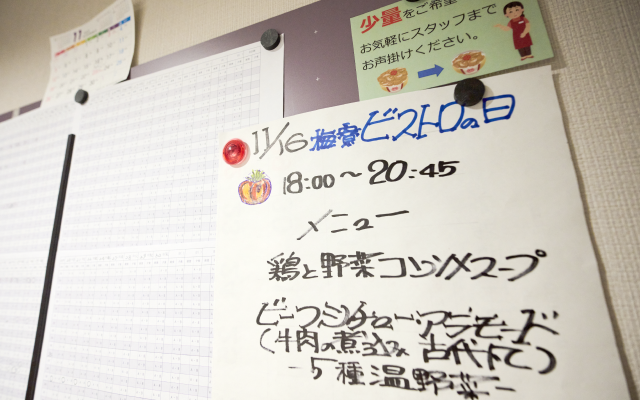 11
少量をご希望
お気軽にスタッフまで
お声掛けください。
11/16 梅寮ビストロの日
18:00〜20:45
メニュー
鶏と野菜コンソメスープ
ビーフシチューアラモード
(牛肉の煮込み 古代下て)
-5種温野菜-